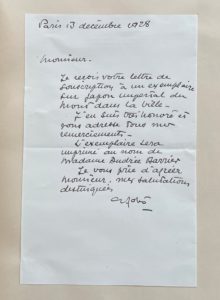 Paris 13 décembre 1928
Monsieur.
Je reçois votre lettre de
souscription à un exemplaire
sur japon impérial du
mort dans la ville -
J'en suis très honoré et
vous adresse tous mes
remerciements -
L'exemplaire sera
imprimé au nom de
Madame Andrée Barrier
Je vous prie d'agréer
Monsieur. mes salutations
distinguées